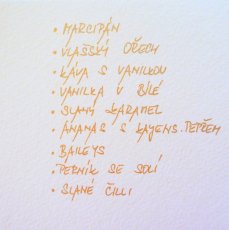 • MARCIPÁN
• VLAŠSKÝ OŘECH
• KÁVA S VANILKOU
• VANILKA V BÍLÉ
• SLANÝ KARAMEL
• ANANAS S KAYENS. PEPŘEM
• BAILEYS
• PERNÍK SE SOLÍ
• SLANÉ ČILLI